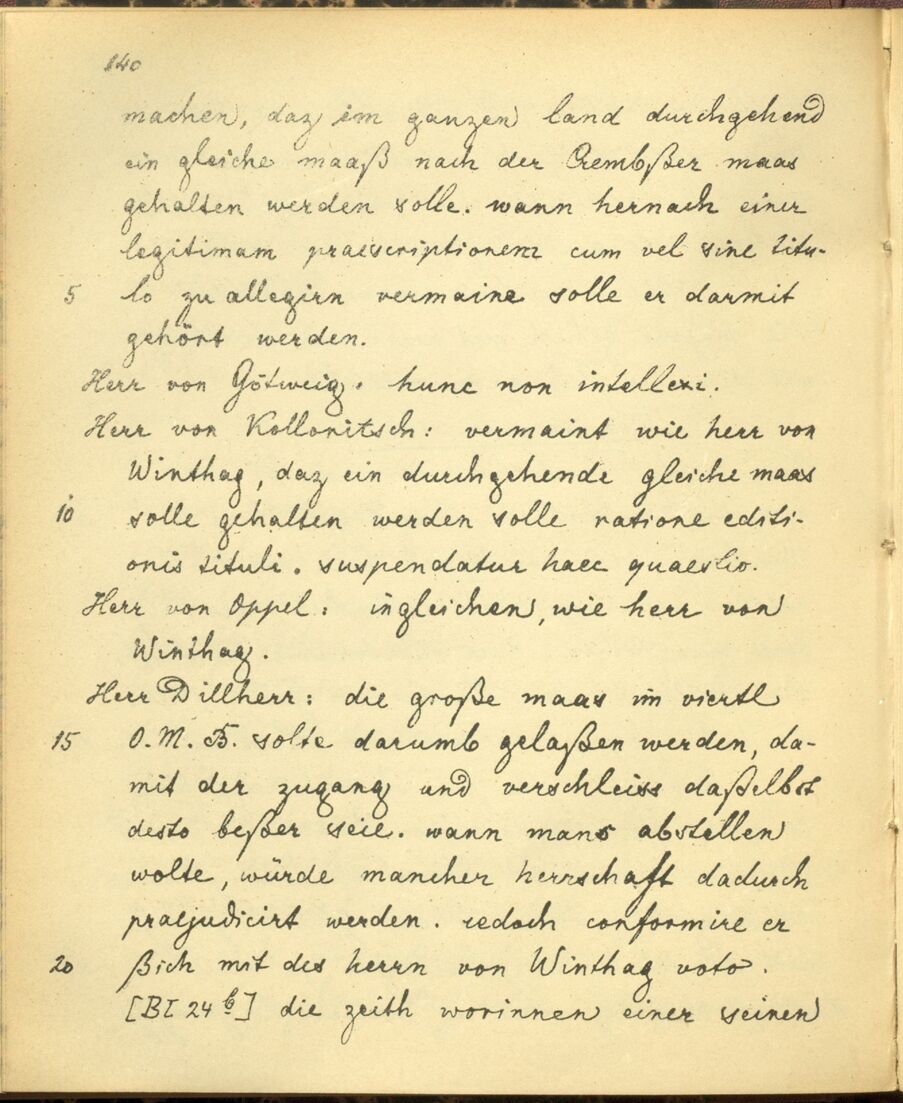 140
machen, daz im ganzen land durchgehend
ein gleiche maaß nach der Crembßer maas
gehalten werden solle. wann hernach einer
legitimam praescriptionem cum vel sine titu-
5 lo zu allegirn vermaine solle er darmit
gehört werden.
Herr von Götweig. hunc non intellexi.
Herr von Kollonitsch: vermaint wie herr von
Winthag, daz ein durchgehende gleiche maas
10 solle gehalten werden solle ratione editi-
onis tituli. suspendatur haec quaestio.
Herr von Oppel: ingleichen, wie herr von
Winthag.
Herr Dillherr: die große maas im viertl
15 O.M.B. solte darumb gelaßen werden, da-
mit der zugang und verschleiss daßelbst
desto beßer seie. wann mans abstellen
wolte, würde mancher herrschaft dadurch
praejudicirt werden. iedoch conformire er
20 ßich mit des herrn von Winthag voto.
[Bl 24b] die zeith worinnen einer seinen